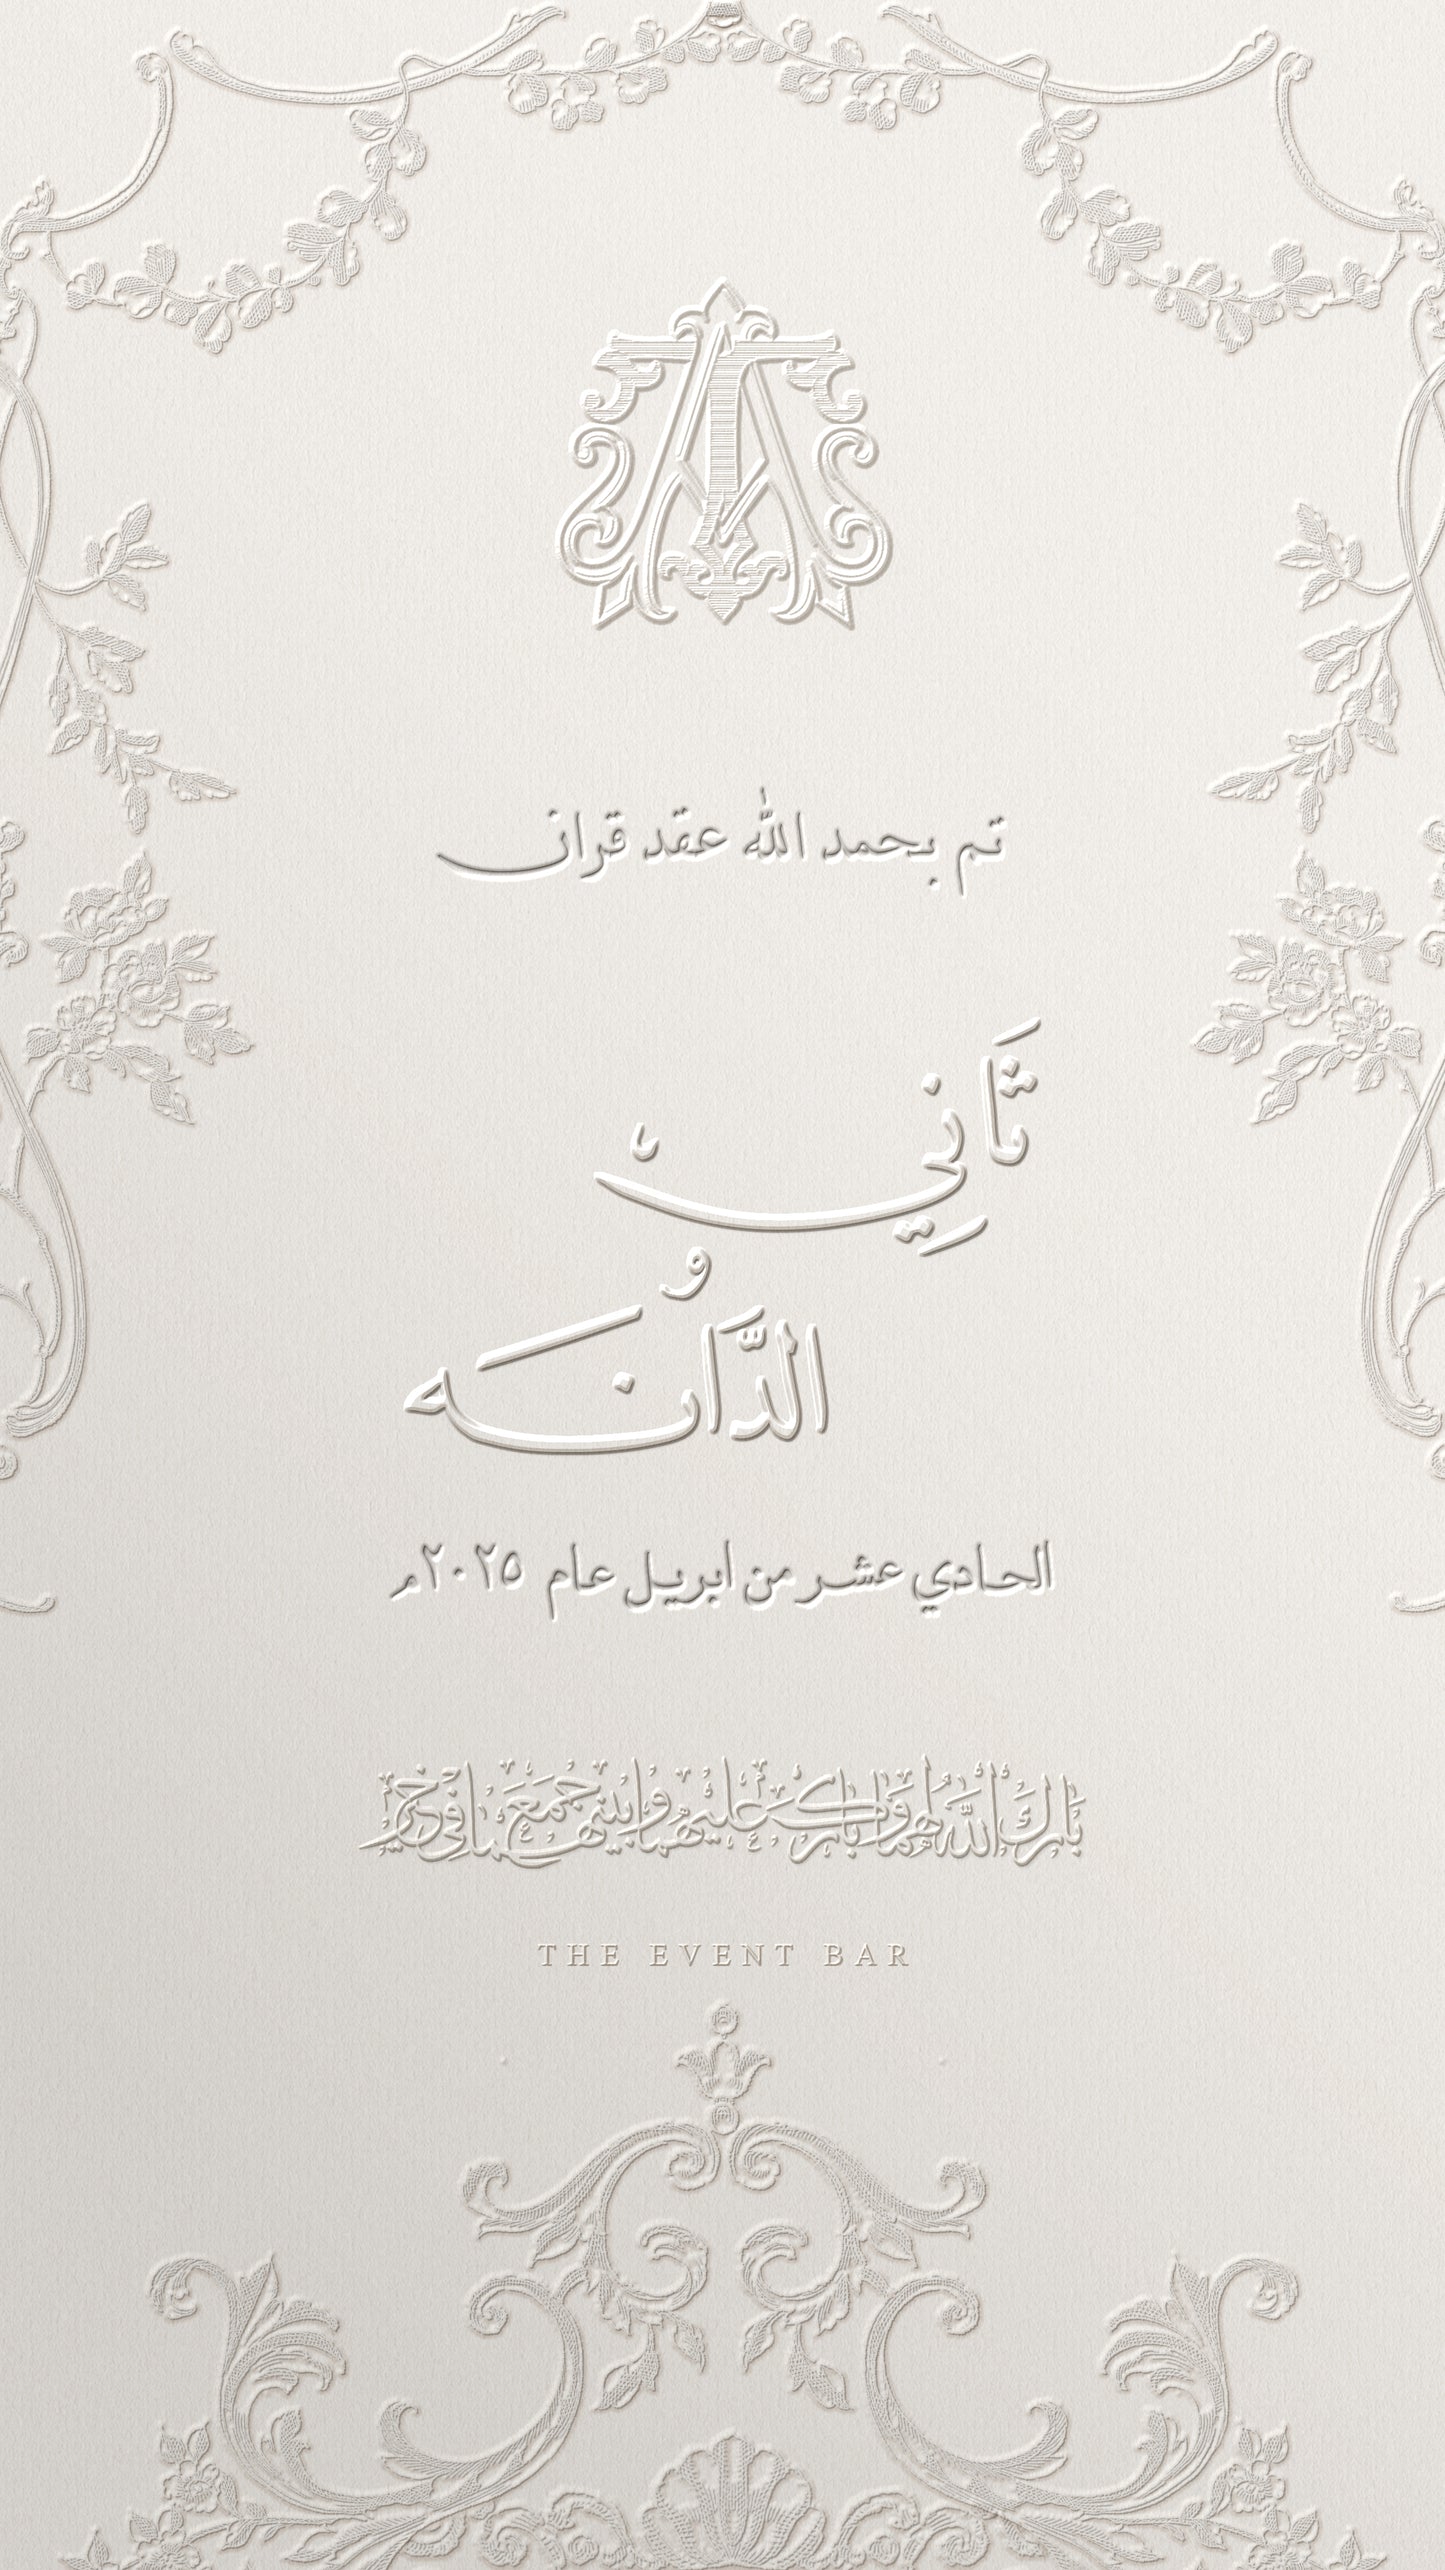 تم بحمد الله عقد قران
ثَانِي
و
الدَّانَه
الحادي عشر من ابريل عام ٢٠٢٥م
بَارَكَ اللَّهُ لَهُمَا وَبَارَكَ عَلَيْهِمَا وَجَمَعَ بَيْنَهُمَا فِي خَيْرٍ
THE EVENT BAR